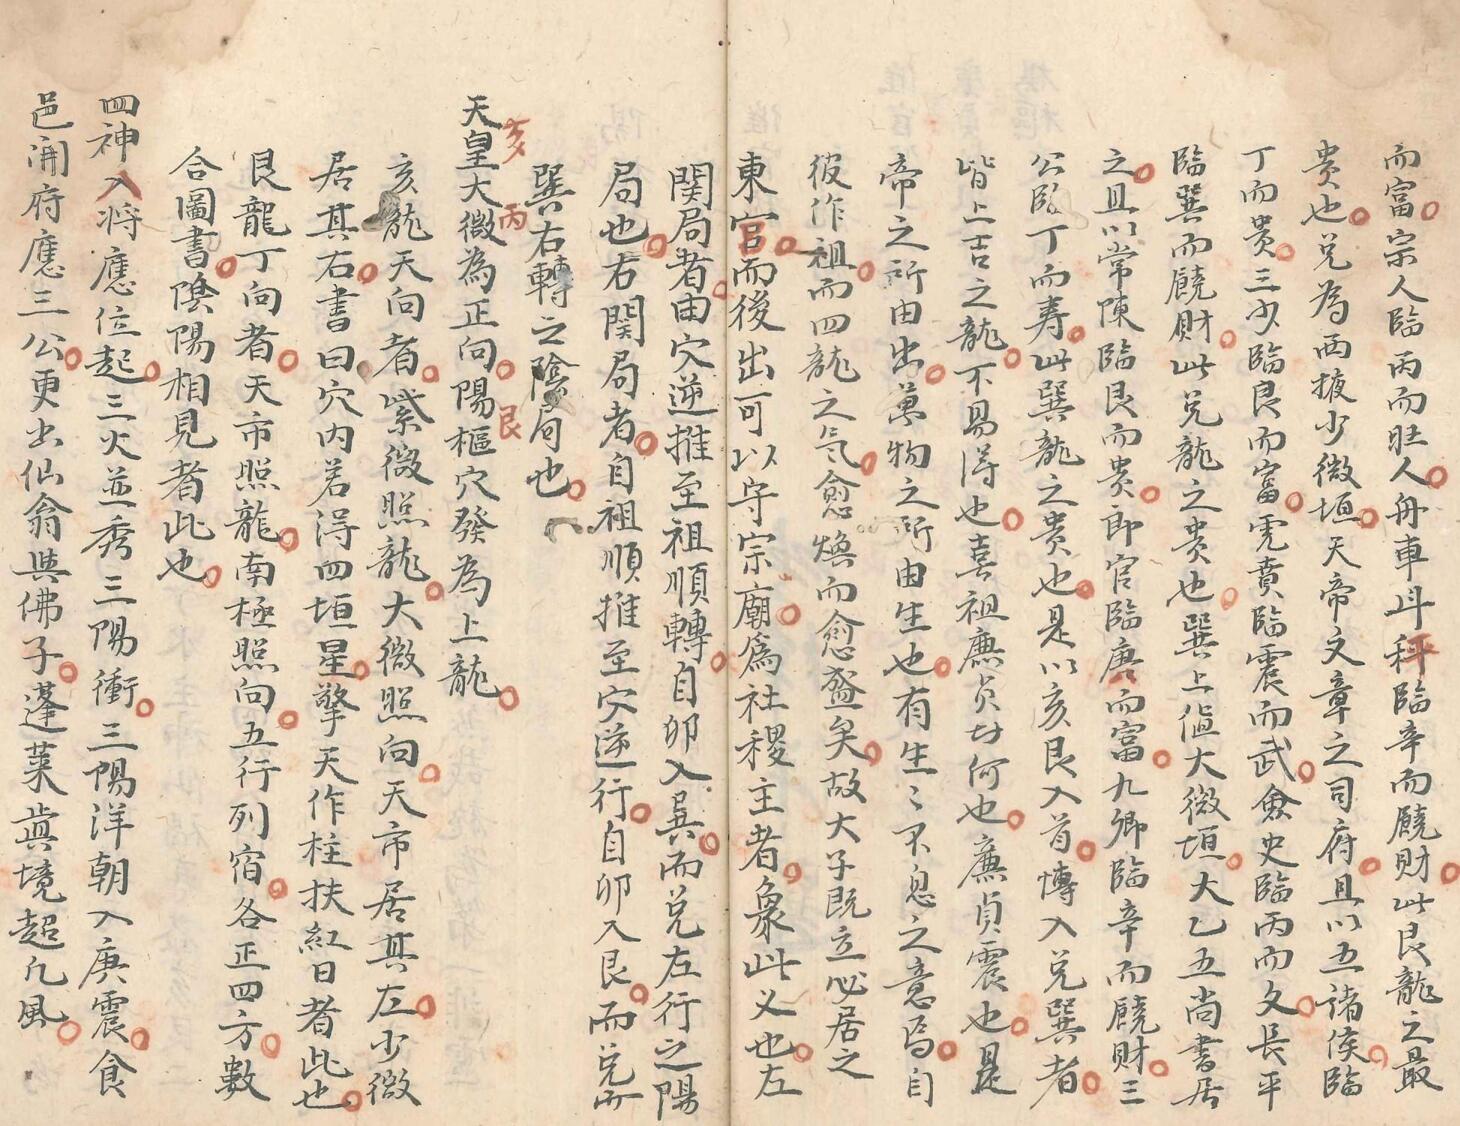 而富宗人臨丙而旺人舟車斗秤臨辛而饒財此艮龍之最
贵也兑為西掖少微垣天帝文章之司府且以五諸侯臨
丁而贵三少臨艮而富虎賁臨震而武倉史臨丙而文長平
臨巽而饒財此兑龍之贵也巽上值大微垣大乙五尚書居
之且以常陳臨艮而贵郎官臨庚而富九卿臨辛而饒財三
公臨丁而寿此巽龍之贵也是以亥艮入首博入兑巽者
皆上吉之龍不易得也喜祖廉贞者何也廉貞震也是
帝之所由出萬物之所由生也有生〻不息之意焉自
彼作祖而四龍之气愈煥而愈盛矣故大子既立必居之
東官而後出可以守宗廟為社稷主者象此义也左
関局者由穴逆推至祖順轉自卯入巽而兑左行之陽
局也右関局者自祖順推至穴逆行自卯入艮而兑所
巽右轉之陰局也
天皇大微為正向陽樞穴發為上龍
亥丙艮
亥龍天向者紫微照龍大微照向天市居其左少微
居其右書曰穴内若得四垣星擎天作柱扶紅日者此也
艮龍丁向者天市照龍南極照向五行列宿各正四方數
合圖書陰陽相見者此也
四神入将應位起三火並秀三陽衝三陽洋朝入庚震食
邑開府應三公更出仙翁與佛子蓬萊眞境超凡風